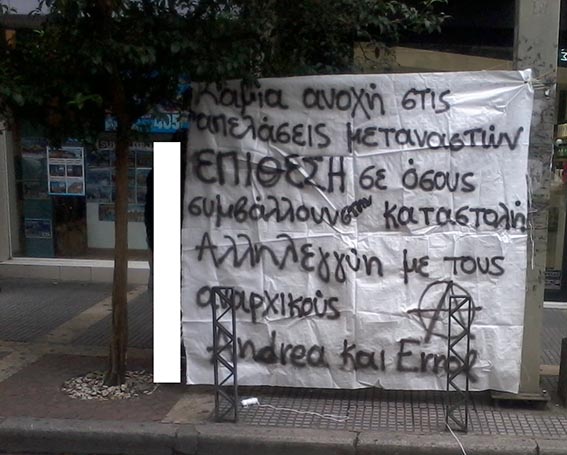 Καμία ανοχή στις
απελάσεις μεταναστών
ΕΠΙΘΕΣΗ σε όσους
συμβάλλουν στην καταστολή
Αλληλεγγύη με τους
αναρχικούς
Andrea και